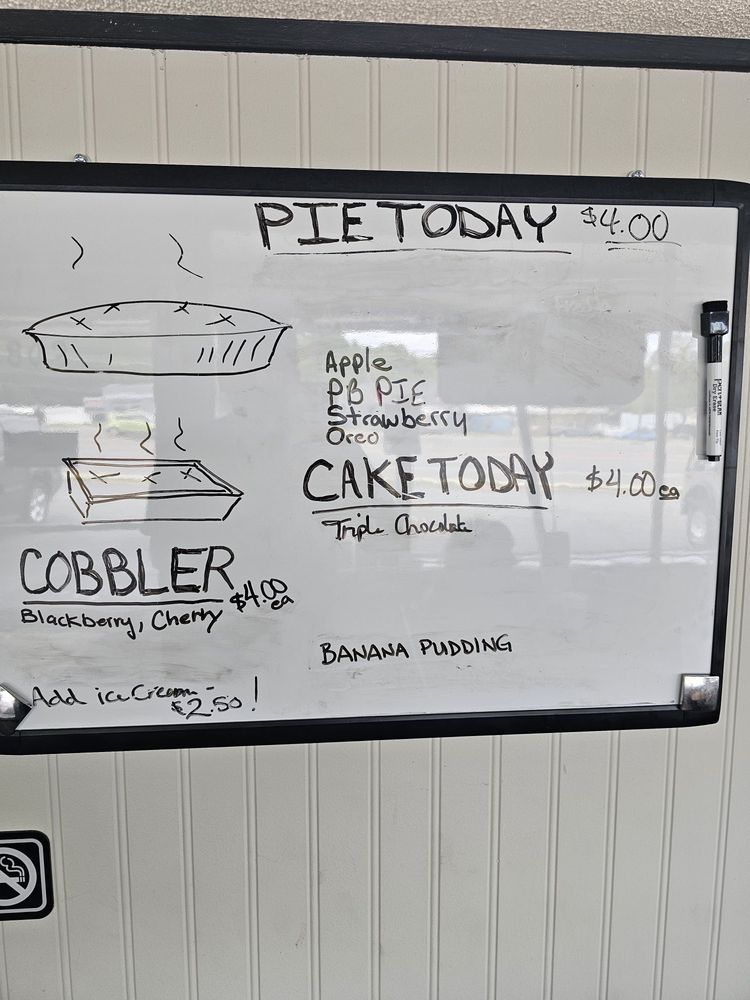 PIE TODAY $4.00
Apple
PB PIE
Strawberry
Oreo
CAKE TODAY $4.00 ea
Triple Chocolate
COBBLER
$4.00 ea
Blackberry, Cherry
BANANA PUDDING
Add ice Cream -
$2.50!